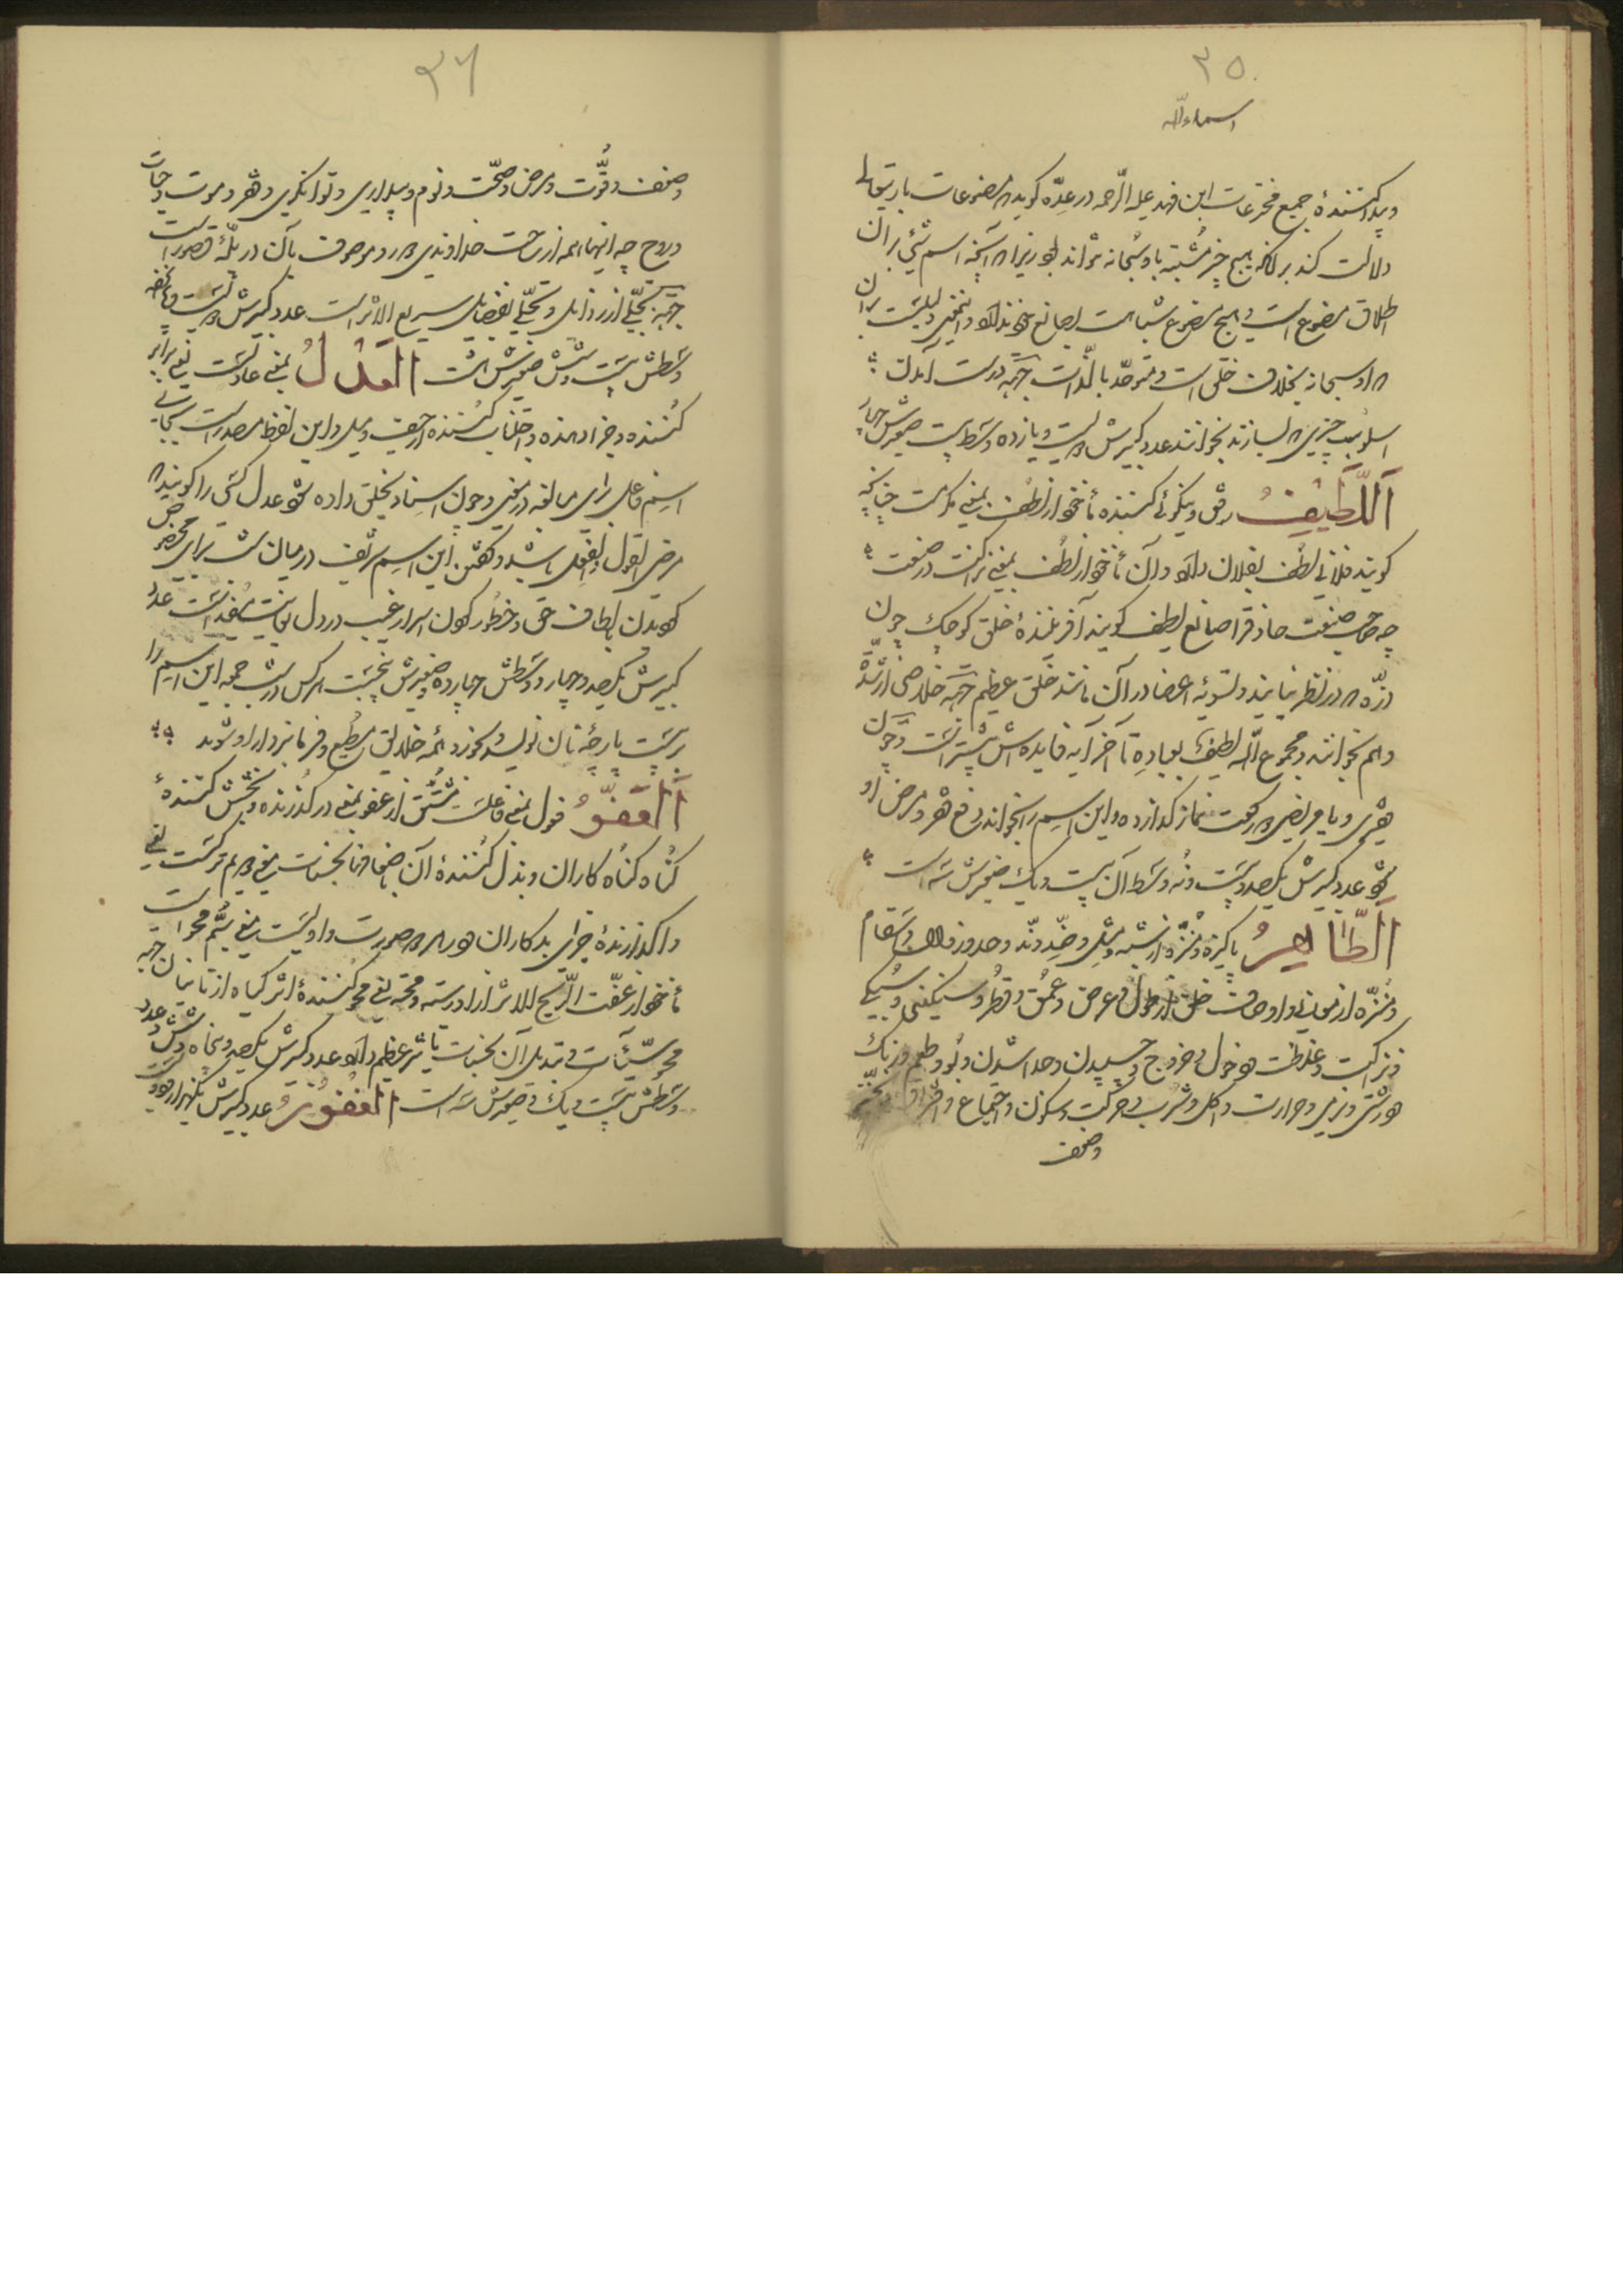 ٣٥
اسماءالله
و پیدا کنندهٔ جمیع مخترعات ابن فهد علیه الرحمه در عدّه گوید که مصنوعات باریتعالی
دلالت کند بر آنکه هیچ چیز مشتبه باو سبحانه نتواند بود زیرا که آنچه اسم شیٔ بر آن
اطلاق مصنوع است و هیچ مصنوع شباهت بصانع خود ندارد و
که او سبحانه بخلاف خلق است و متوحّد بالذات جهة درست آمدن
اسلوب چیزی که بسازند بخوانند عدد کبیرش و یازده وسطش بیست صغیرش چهار
اَللَّطِیْفُ رفق و نیکوئی کننده مأخوذ از لطف بمعنی مکرمت چنانکه
گویند فلانی لطف بفلان دارد و آن مأخوذ از لطف بمعنی نزاکت در صنعت
چه صاحب صنعت حاذق را صانع لطیف گویند آفرینندهٔ خلق کوچک چون
ذرّه که در نظر نیایند و تسویهٔ اعضا در آن مانند خلق عظیم جهة خلاصی از شدّة
و الم بخوانند و مجموع اللّه لطیف بعباده تا آخر آیه فایده اش بیشتر است و چون
فقیری و یا مریضی دو رکعت نماز گذارده و این اسم را بخواند رفع فقر و مرض او
شود عدد کبیرش یکصد و بیست و نه وسط آن بیست و یک صغیرش سه است
اَلطّاهِرُ پاکیزه و منزّه از شبه و مثل و ضدّ و ندّ و حدوث و زوال و انتقام
و منزّه از معانی و اوصاف خلق از طول و عرض و عمق و قطر و سنگینی و سبکی
و نزاکت و غلظت و دخول و خروج و چسپیدن و جدا شدن و بو و طعم و رنگ
و درشتی و نرمی و حرارت و اکل و شرب و حرکت و سکون و اجتماع و افتراق
وضعف
٣٦
وضعف و قوّت و مرض و صحّت و نوم و بیداری و توانگری و فقر و موت و حیات
و روح چه اینها همه از ساحت خداوندی دور و موصوف بآن در پلّهٔ قصور است
جهة تخلّی از رذایل و تحلّی بفضایل سریع الاثر است عدد کبیرش
وسطش بیست و شش صغیرش هشت اَلعَدْلُ بمعنی عادلست یعنی برابر
کننده و جزا دهنده و اجتناب کننده از حیف و میل و این لفظ مصدر است بجای
اسم فاعل برای مبالغه در معنی و چون اسناد بخلق داده شود عدل کسی را گویند که
مرضی القول و الفعل باشد و گفتن این اسم شریف در میان شب برای
بودن بالطاف حق و خطور کردن اسرار غیب در دل بغایت مفید است عدد
کبیرش یکصد و چهار و وسطش چهارده صغیرش پنج است هر کس در شب جمعه این اسم را
بر بیست پارچهٔ نان نویسد و بخورد همهٔ خلایق مطیع و فرمانبردار او شوند
اَلعَفُوُّ فعول بمعنی فاعلست مشتق از عفو بمعنی در گذرنده و بخش کنندهٔ
گناه گناه کاران و بذل کنندهٔ آن باضعافها بحسنات معنی دویم ترکست یعنی
واگذارندهٔ جزای بدکاران در هر دو صورت و اولیست معنی سیّم محو است
مأخوذ از عفت الریح للاثر اذا درسته و محته یعنی محو کنندهٔ اثر گیاه از تابستان جهة
محو سیّئات و تبدیل آن بحسنات تاثیر عظیم دارد عدد کبیرش یکصد و پنجاه و شش عدد
وسطش بیست و یک و صغیرش سه است اَلغَفُورُ عدد کبیرش یکهزار و دویست